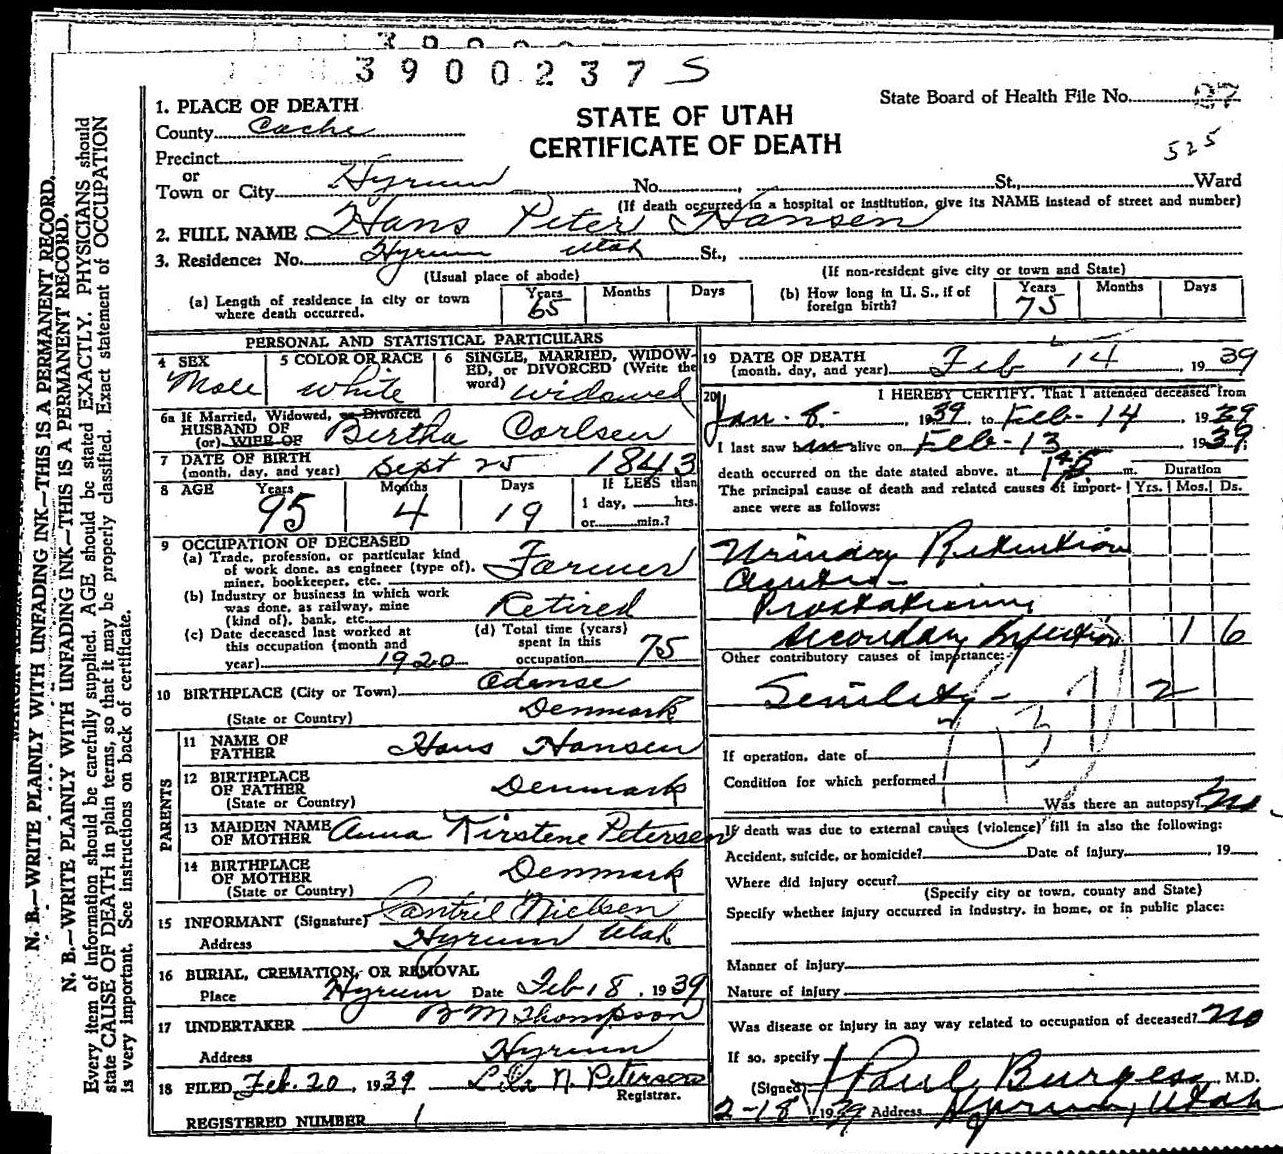 3900237 S
State Board of Health File No. 37
525
STATE OF UTAH
CERTIFICATE OF DEATH
1. PLACE OF DEATH
County Cache
Precinct
or
Town or City Hyrum No. , St., Ward
(If death occurred in a hospital or institution, give its NAME instead of street and number)
2. FULL NAME Hans Peter Hansen
3. Residence: No. Hyrum Utah St.,
(Usual place of abode) (If non-resident give city or town and State)
(a) Length of residence in city or town where death occurred. Years 65 Months Days
(b) How long in U. S., if of foreign birth? Years 75 Months Days
PERSONAL AND STATISTICAL PARTICULARS
4 SEX Male
5 COLOR OR RACE White
6 SINGLE, MARRIED, WIDOWED, or DIVORCED (Write the word) Widowed
6a If Married, Widowed, or Divorced
HUSBAND OF
(or) WIFE OF Bertha Carlsen
7 DATE OF BIRTH
(month, day, and year) Sept 25 1843
8 AGE Years 95 Months 4 Days 19 If LESS than 1 day, hrs. or min.?
9 OCCUPATION OF DECEASED
(a) Trade, profession, or particular kind of work done, as engineer (type of), miner, bookkeeper, etc. Farmer
(b) Industry or business in which work was done, as railway, mine (kind of), bank, etc. Retired
(c) Date deceased last worked at this occupation (month and year) 1920
(d) Total time (years) spent in this occupation 75
10 BIRTHPLACE (City or Town) Odense
(State or Country) Denmark
PARENTS
11 NAME OF FATHER Hans Hansen
12 BIRTHPLACE OF FATHER
(State or Country) Denmark
13 MAIDEN NAME OF MOTHER Anna Kirstene Petersen
14 BIRTHPLACE OF MOTHER
(State or Country) Denmark
15 INFORMANT (Signature) Cantril Nielsen
Address Hyrum Utah
16 BURIAL, CREMATION, OR REMOVAL
Place Hyrum Date Feb 18, 1939
17 UNDERTAKER B M Thompson
Address Hyrum
18 FILED Feb. 20, 1939 Lila N. Peterson
Registrar.
REGISTERED NUMBER 1
19 DATE OF DEATH
(month, day, and year) Feb 14, 1939
20 I HEREBY CERTIFY, That I attended deceased from
Jan. 8, 1939, to Feb - 14, 1939
I last saw him alive on Feb - 13 1939,
death occurred on the date stated above, at 1 45 P m.
The principal cause of death and related causes of importance were as follows:
Duration Yrs. Mos. Ds.
Urinary Retention
Acute
Prostatism
Secondary Infection 1 6
Other contributory causes of importance:
Senility - 2
137
If operation, date of
Condition for which performed
Was there an autopsy? No
If death was due to external causes (violence) fill in also the following:
Accident, suicide, or homicide? Date of injury , 19
Where did injury occur?
(Specify city or town, county and State)
Specify whether injury occurred in industry, in home, or in public place:
Manner of injury
Nature of injury
Was disease or injury in any way related to occupation of deceased? No
If so, specify
(Signed) Paul Burgess, M.D.
2-18 1939 Address Hyrum, Utah
N. B.—WRITE PLAINLY WITH UNFADING INK—THIS IS A PERMANENT RECORD.
N. B.—WRITE PLAINLY WITH UNFADING INK—THIS IS A PERMANENT RECORD.
Every item of information should be carefully supplied. AGE should be stated EXACTLY. PHYSICIANS should
state CAUSE OF DEATH in plain terms, so that it may be properly classified. Exact statement of OCCUPATION
is very important. See instructions on back of certificate.